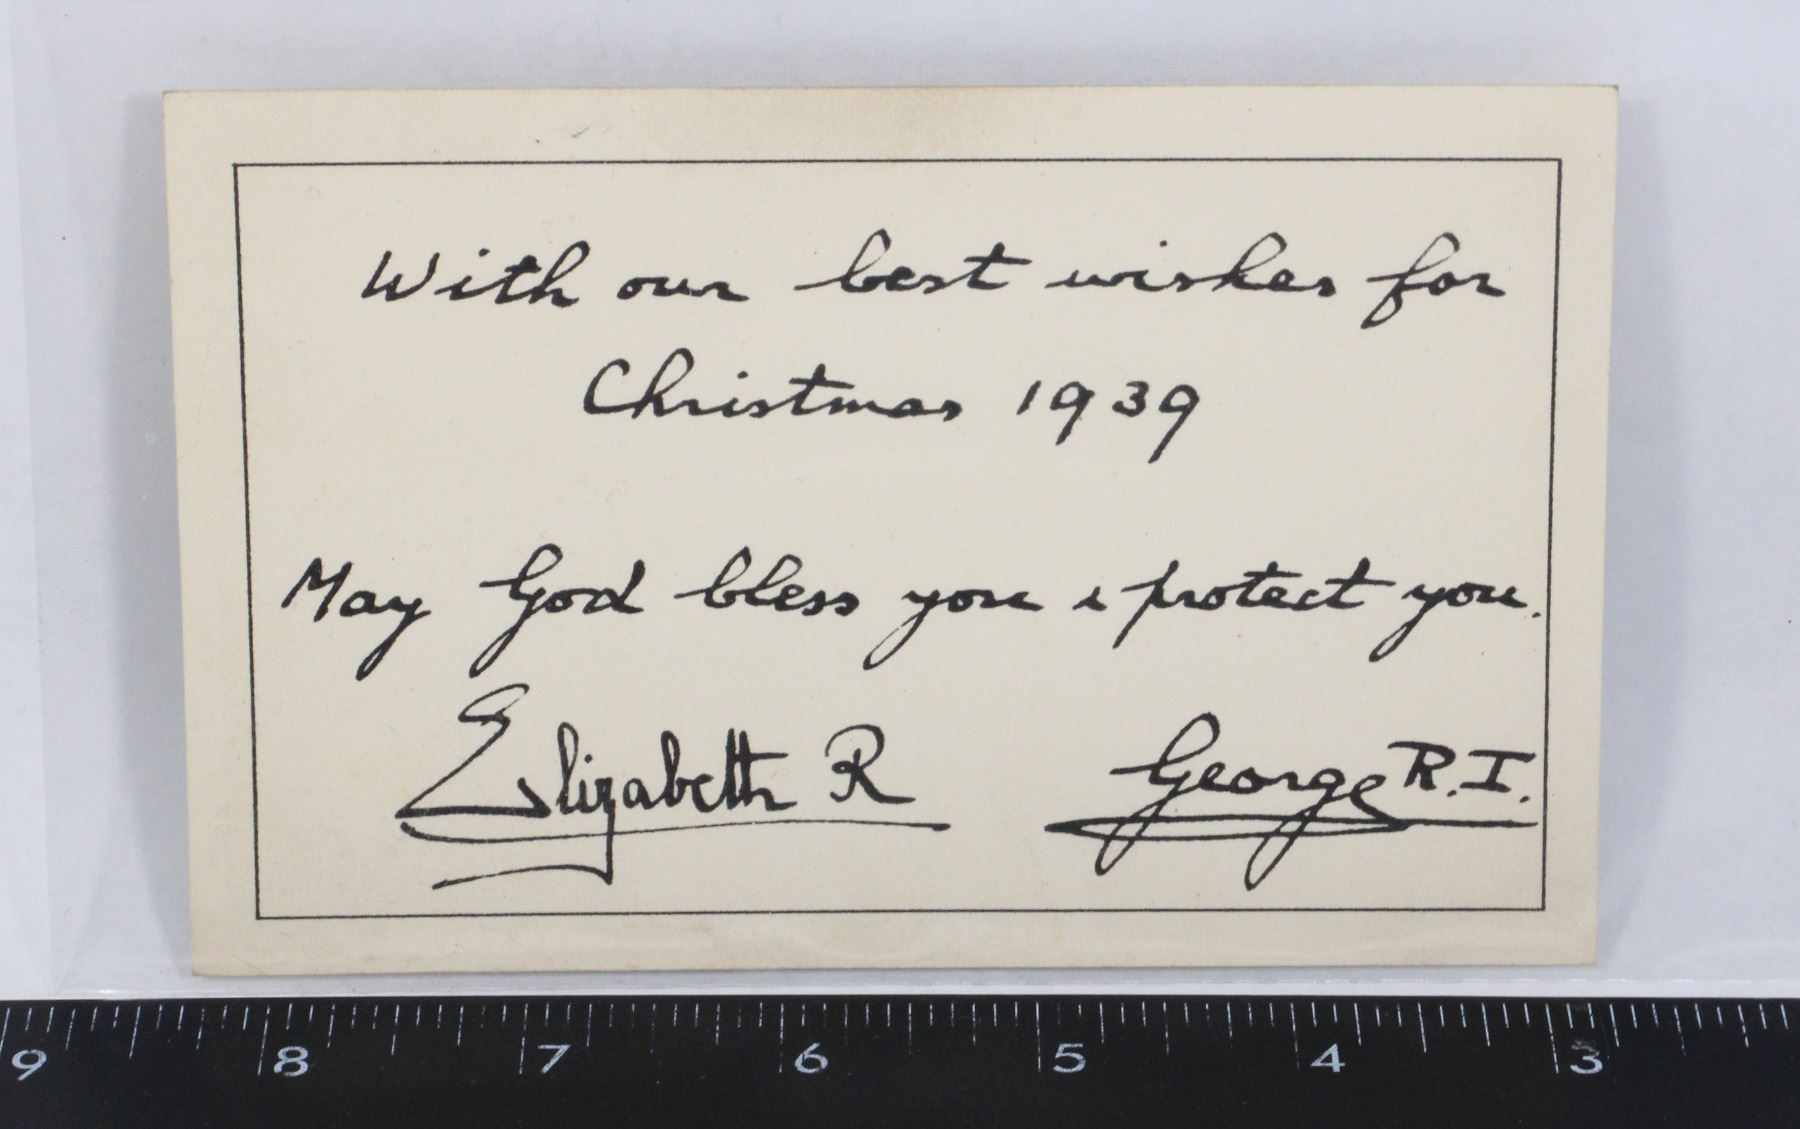 With our best wishes for
Christmas 1939
May God bless you & protect you.
Elizabeth R George R.I.
9 8 7 6 5 4 3